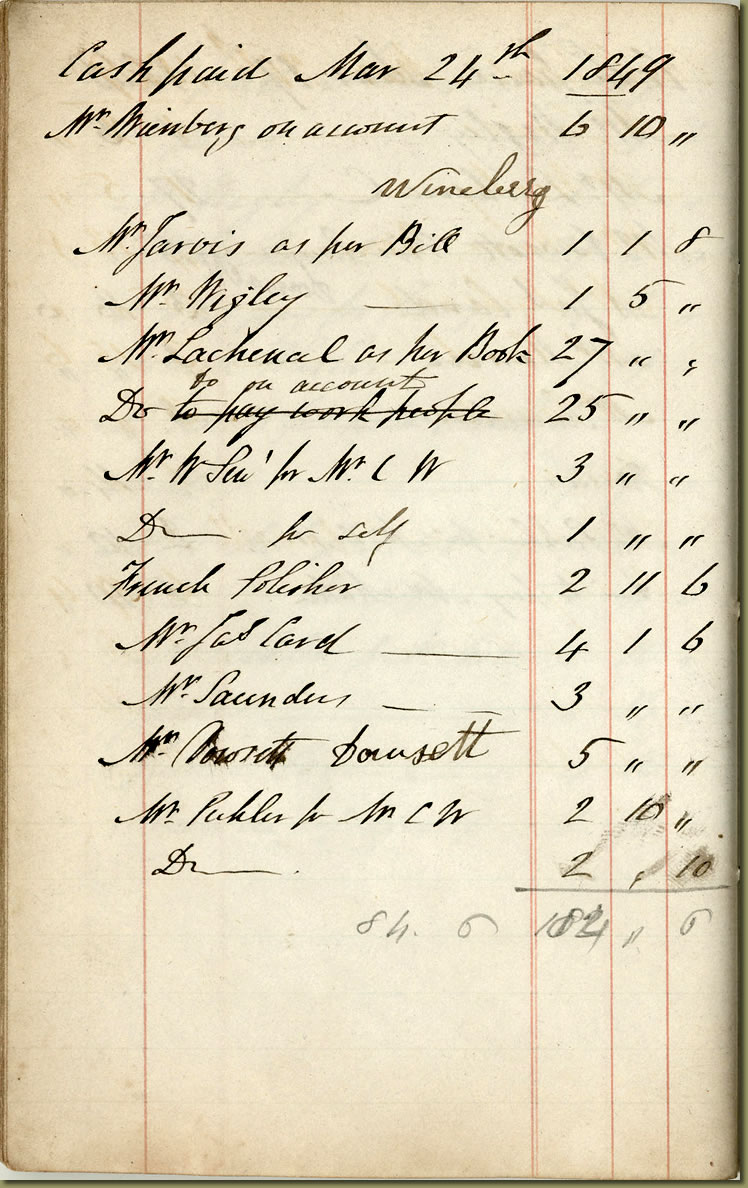 Cash paid Mar 24th 1849
Mr. Wienberg on account 6 10 "
Wineberg
Mr. Jarvis as per Bill 1 1 8
Mr. Wigley — 1 5 "
Mr. Lachenal as per Book 27 " "
to on account
Do to pay work people 25 " "
Mr. W Senr for Mr. C W 3 " "
Do — for self 1 " "
French Polisher 2 11 6
Mr. Jas Card — 4 1 6
Mr. Saunders — — 3 " "
Mr. Dowsett 5 " "
Mr. Pichler for Mr C W 2 10 "
Do —. 2 " 10
84. 6 " 6